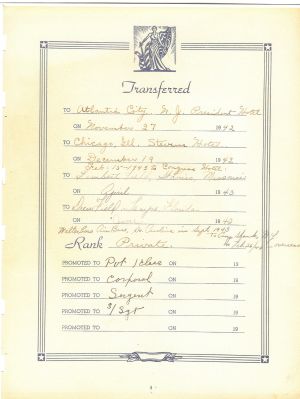 Transferred
TO Atlantic City, N. J. President Hotel
ON November 27 1942
TO Chicago, Ill. Stevens Hotel
ON December 19 1942
Feb. 15-1943 to Congress Hotel
TO Missouri
ON April 1943
TO Drew Field - Tampa Florida
ON June 1943
in Sept 1943
Rank Private
PROMOTED TO Pvt 1/Class ON 19
PROMOTED TO Corporal ON 19
PROMOTED TO Sergent ON 19
PROMOTED TO S/Sgt ON 19
PROMOTED TO ON 19